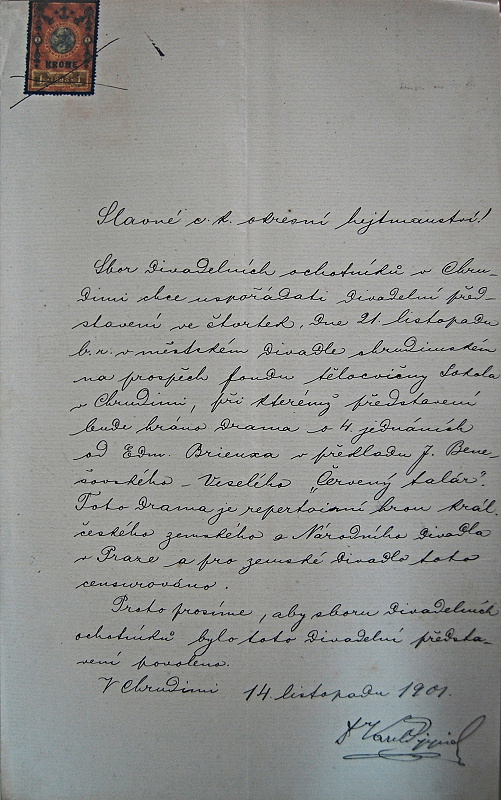 1 KRONE 1
Slavné c. k. okresní hejtmanství!
Sbor divadelních ochotníků v Chru-
dimi chce uspořádati divadelní před-
stavení ve čtvrtek, dne 21. listopadu
b. r. v městském divadle chrudimském
na prospěch fondu tělocvičny Sokola
v Chrudimi, při kterémž představení
bude hráno drama o 4 jednáních
od Edm. Brieuxa v překladu J. Bene-
šovského - Veselého „Červený talár".
Toto drama je repertoirní hrou král.
českého zemského a Národního divadla
v Praze a pro zemské divadlo toto
censurováno.
Proto prosíme, aby sboru divadelních
ochotníků bylo toto divadelní předsta-
vení povoleno.
V Chrudimi 14. listopadu 1901.
Dr Karel Pippich